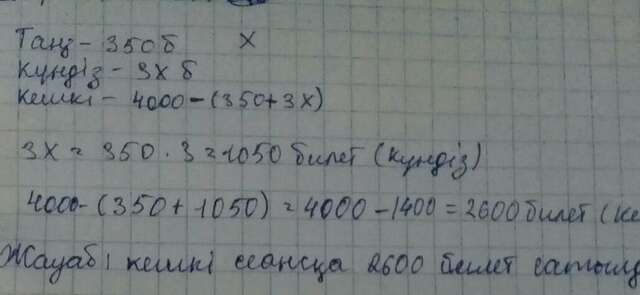 Таңғ – 350 б х
Күндіз – 3х б
Кешкі – 4000 – (350 + 3х)
3х = 350 · 3 = 1050 билет (күндіз)
4000 – (350 + 1050) = 4000 – 1400 = 2600 билет (ке
Жауабі кешкі сеансқа 2600 билет сатылд